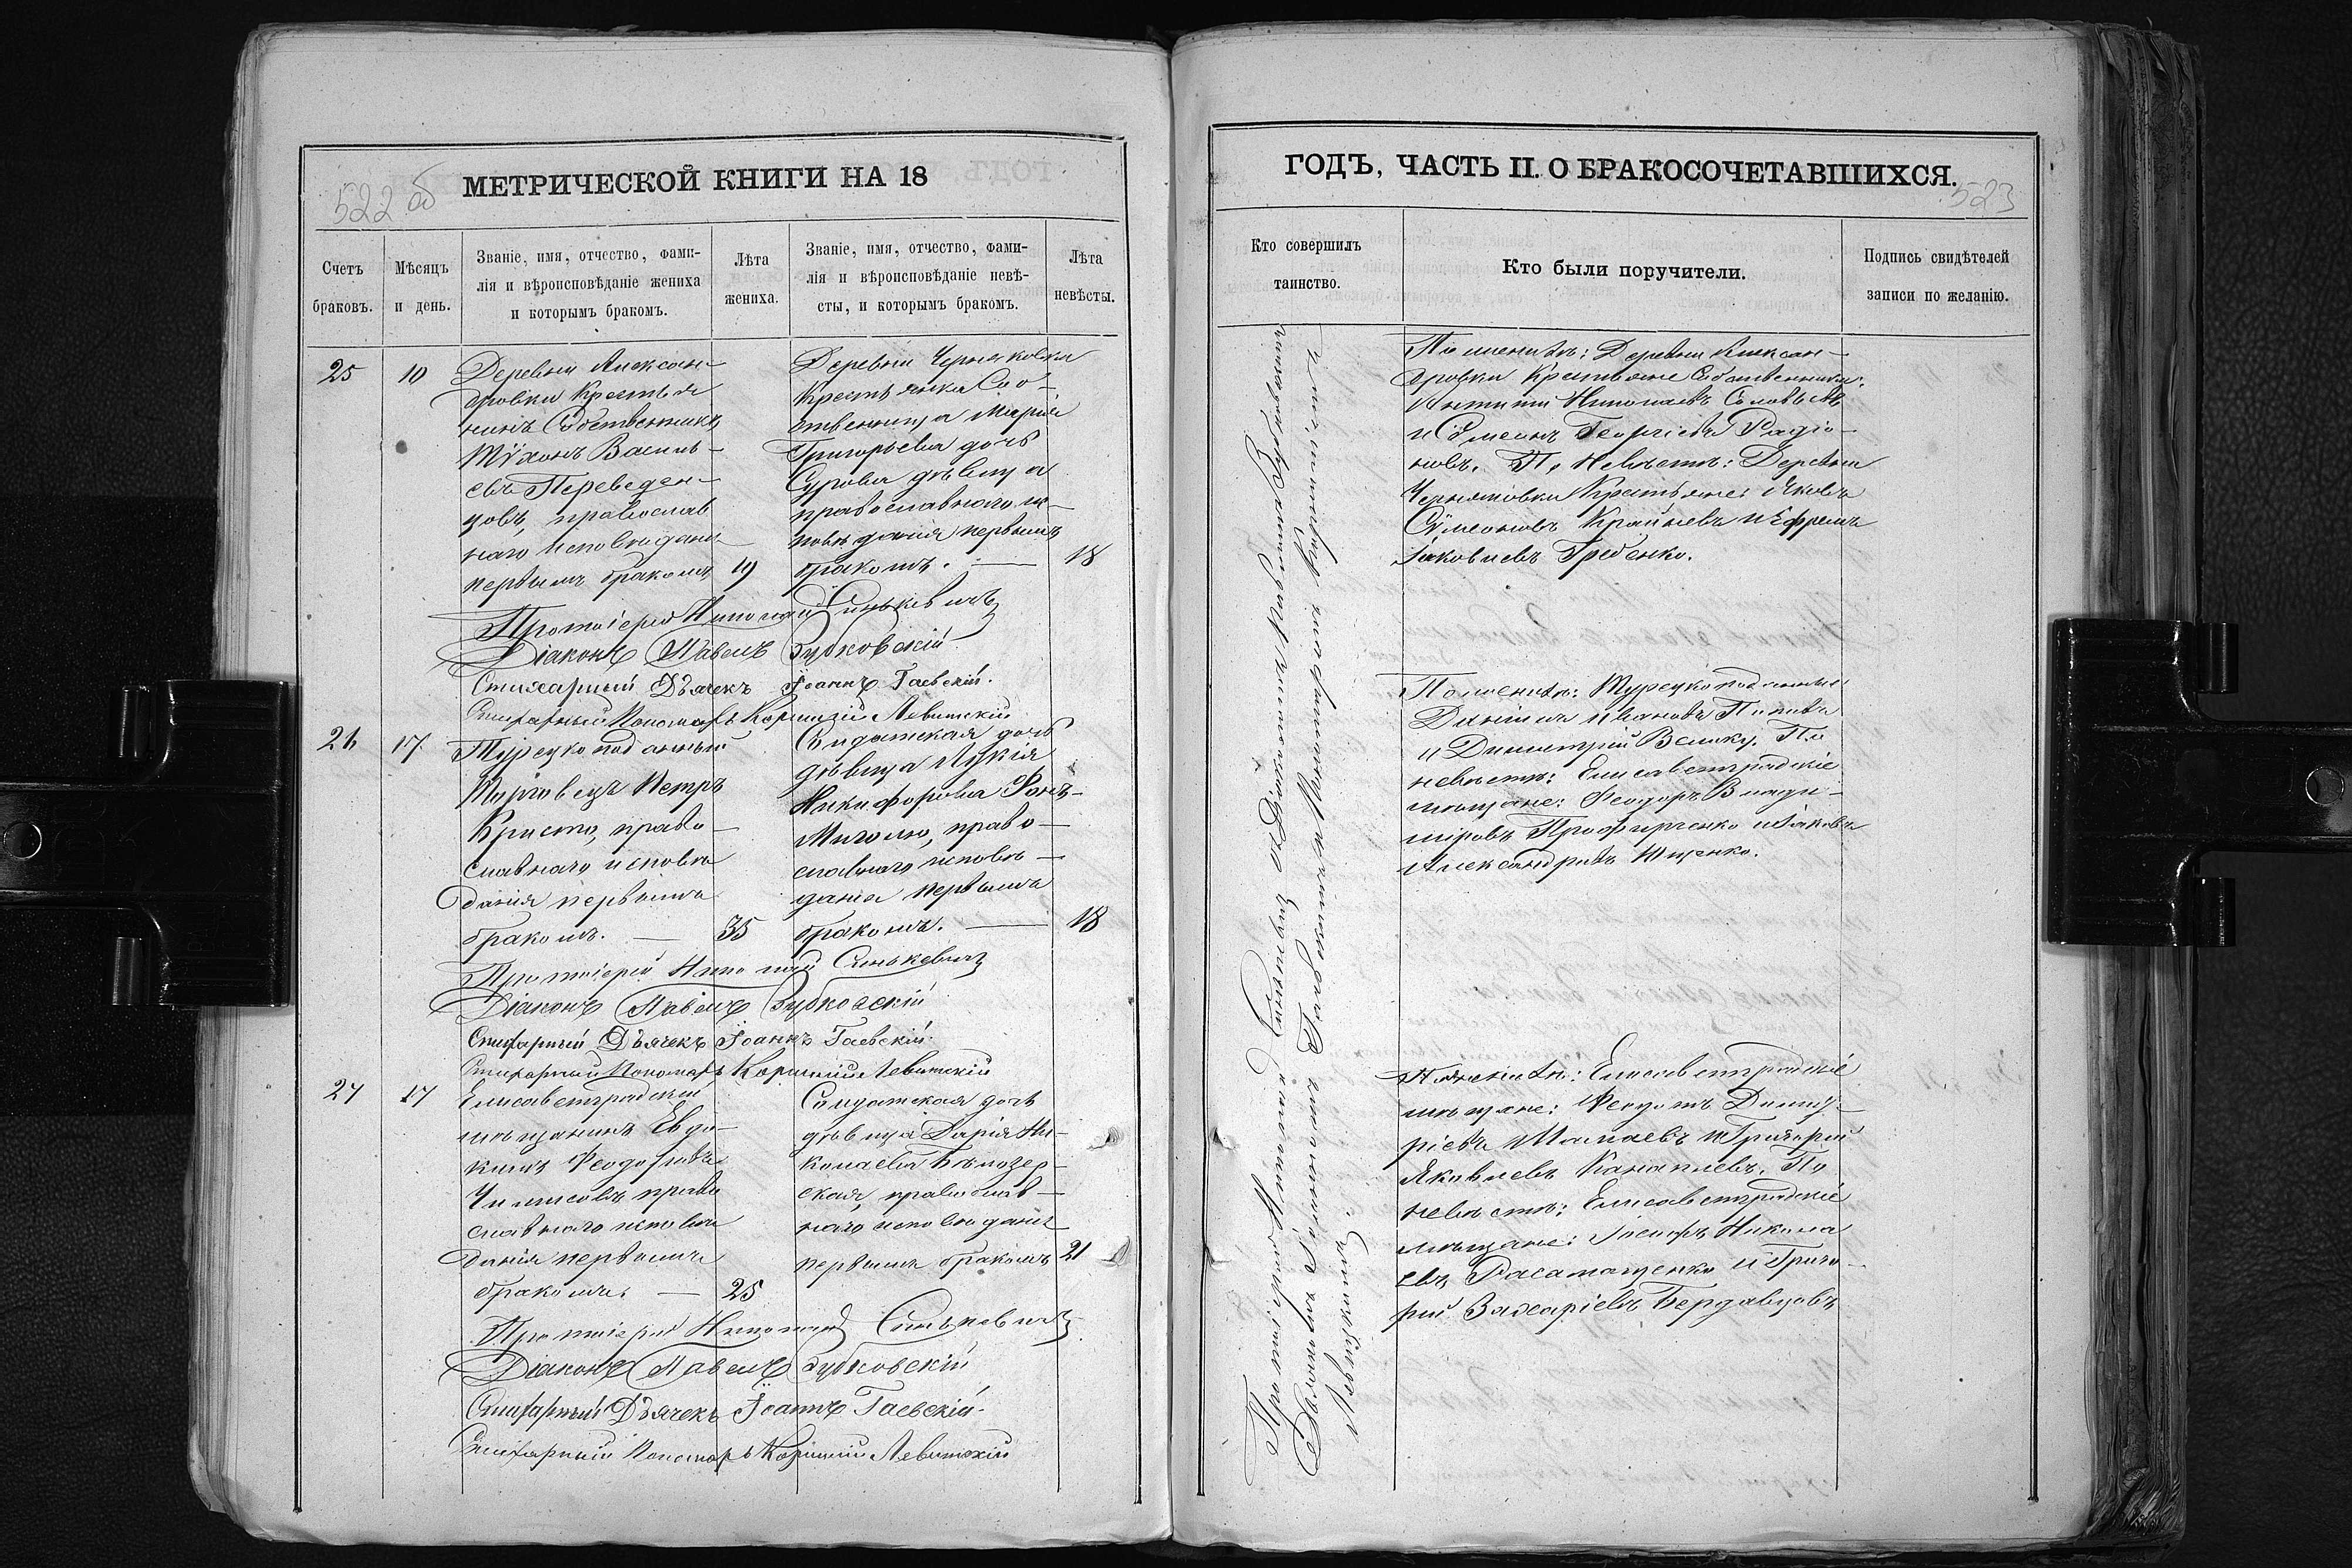 МЕТРИЧЕСКОЙ КНИГИ НА 18
522 об
Счетъ
браковъ.
Мѣсяцъ
и день.
Званіе, имя, отчество, фами-
лія и вѣроисповѣданіе жениха
и которымъ бракомъ.
Лѣта
жениха.
Званіе, имя, отчество, фами-
лія и вѣроисповѣданіе невѣ-
сты, и которымъ бракомъ.
Лѣта
невѣсты.
25
10
Деревни Алексан-
дровки Крестья
нинъ Собственникъ
Тѵхонъ Василь-
евъ Переведен-
цовъ, православ
наго исповѣдані
первымъ бракомъ 19
Деревни Черняковки
Крестьянка Соб-
ственница Марія
Григорьева дочь
Сурова дѣвица
православнаго ис-
повѣданія первымъ
бракомъ. — 18
Протоіерей Николай Синькевичъ
Діаконъ Павелъ Зубковскій
Стихарный Дьячекъ Іоаннъ Гаевскій.
Стихарный Пономарь Корнилій Левитскій
26
17
Турецкоподанный
Торговецъ Петръ
Кристо, право-
славнаго исповѣ
данія первымъ
бракомъ. — 35
Солдатская дочь
дѣвица Лукія
Никифорова Фонъ-
Миголю, право-
славнаго исповѣ-
данія первымъ
бракомъ. — 18
Протоіерей Николай Синькевичъ
Діаконъ Павелъ Зубковскій
Стихарный Дьячекъ Іоаннъ Гаевскій.
Стихарный Пономарь Корнилій Левитскій
27
17
Елисаветградскій
мѣщанинъ Евдо-
кимъ Феодоровъ
право
славнаго исповѣ
данія первымъ
бракомъ. — 25
Солдатская дочь
дѣвица Дарія Ни-
колаева Бѣлозер-
ская, православ-
наго исповѣданія
первымъ бракомъ 21
Протоіерей Николай Синькевичъ
Діаконъ Павелъ Зубковскій
Стихарный Дьячекъ Іоаннъ Гаевскій.
Стихарный Пономарь Корнилій Левитскій
ГОДЪ, ЧАСТЬ II. О БРАКОСОЧЕТАВШИХСЯ.
523
Кто совершилъ
таинство.
Кто были поручители.
Подпись свидѣтелей
записи по желанію.
Протоіерей Николай Синькевичъ съ Діакономъ Павломъ Зубковскимъ
Дьячкомъ Іоанномъ Гаевскимъ и Пономаремъ Корниліемъ
Левитскимъ
По женихѣ: Деревни Алексан-
дровки Крестьяне Собственники:
Николаевъ Соловьевъ
и Сѵмеонъ Георгіевъ Радіо-
новъ. По невѣстѣ: Деревни
Черняковки Крестьяне: Яковъ
Сѵмеоновъ Крайневъ и Ефремъ
Іаковлевъ Гребенко.
По женихѣ: Турецкоподанные:
Ивановъ Поповъ
и Димитрій Велику. По
невѣстѣ: Елисаветградскіе
мѣщане: Феодоръ Влади-
міровъ и Іаковъ
Александровъ Ющенко.
По женихѣ: Елисаветградскіе
мѣщане: Феодотъ Димит-
ріевъ Шамаевъ и Григорій
Яковлевъ Канаплевъ. По
невѣстѣ: Елисаветградскіе
мѣщане: Іосифъ Никола
евъ и Григо-
рій Захаріевъ Бердавцовъ